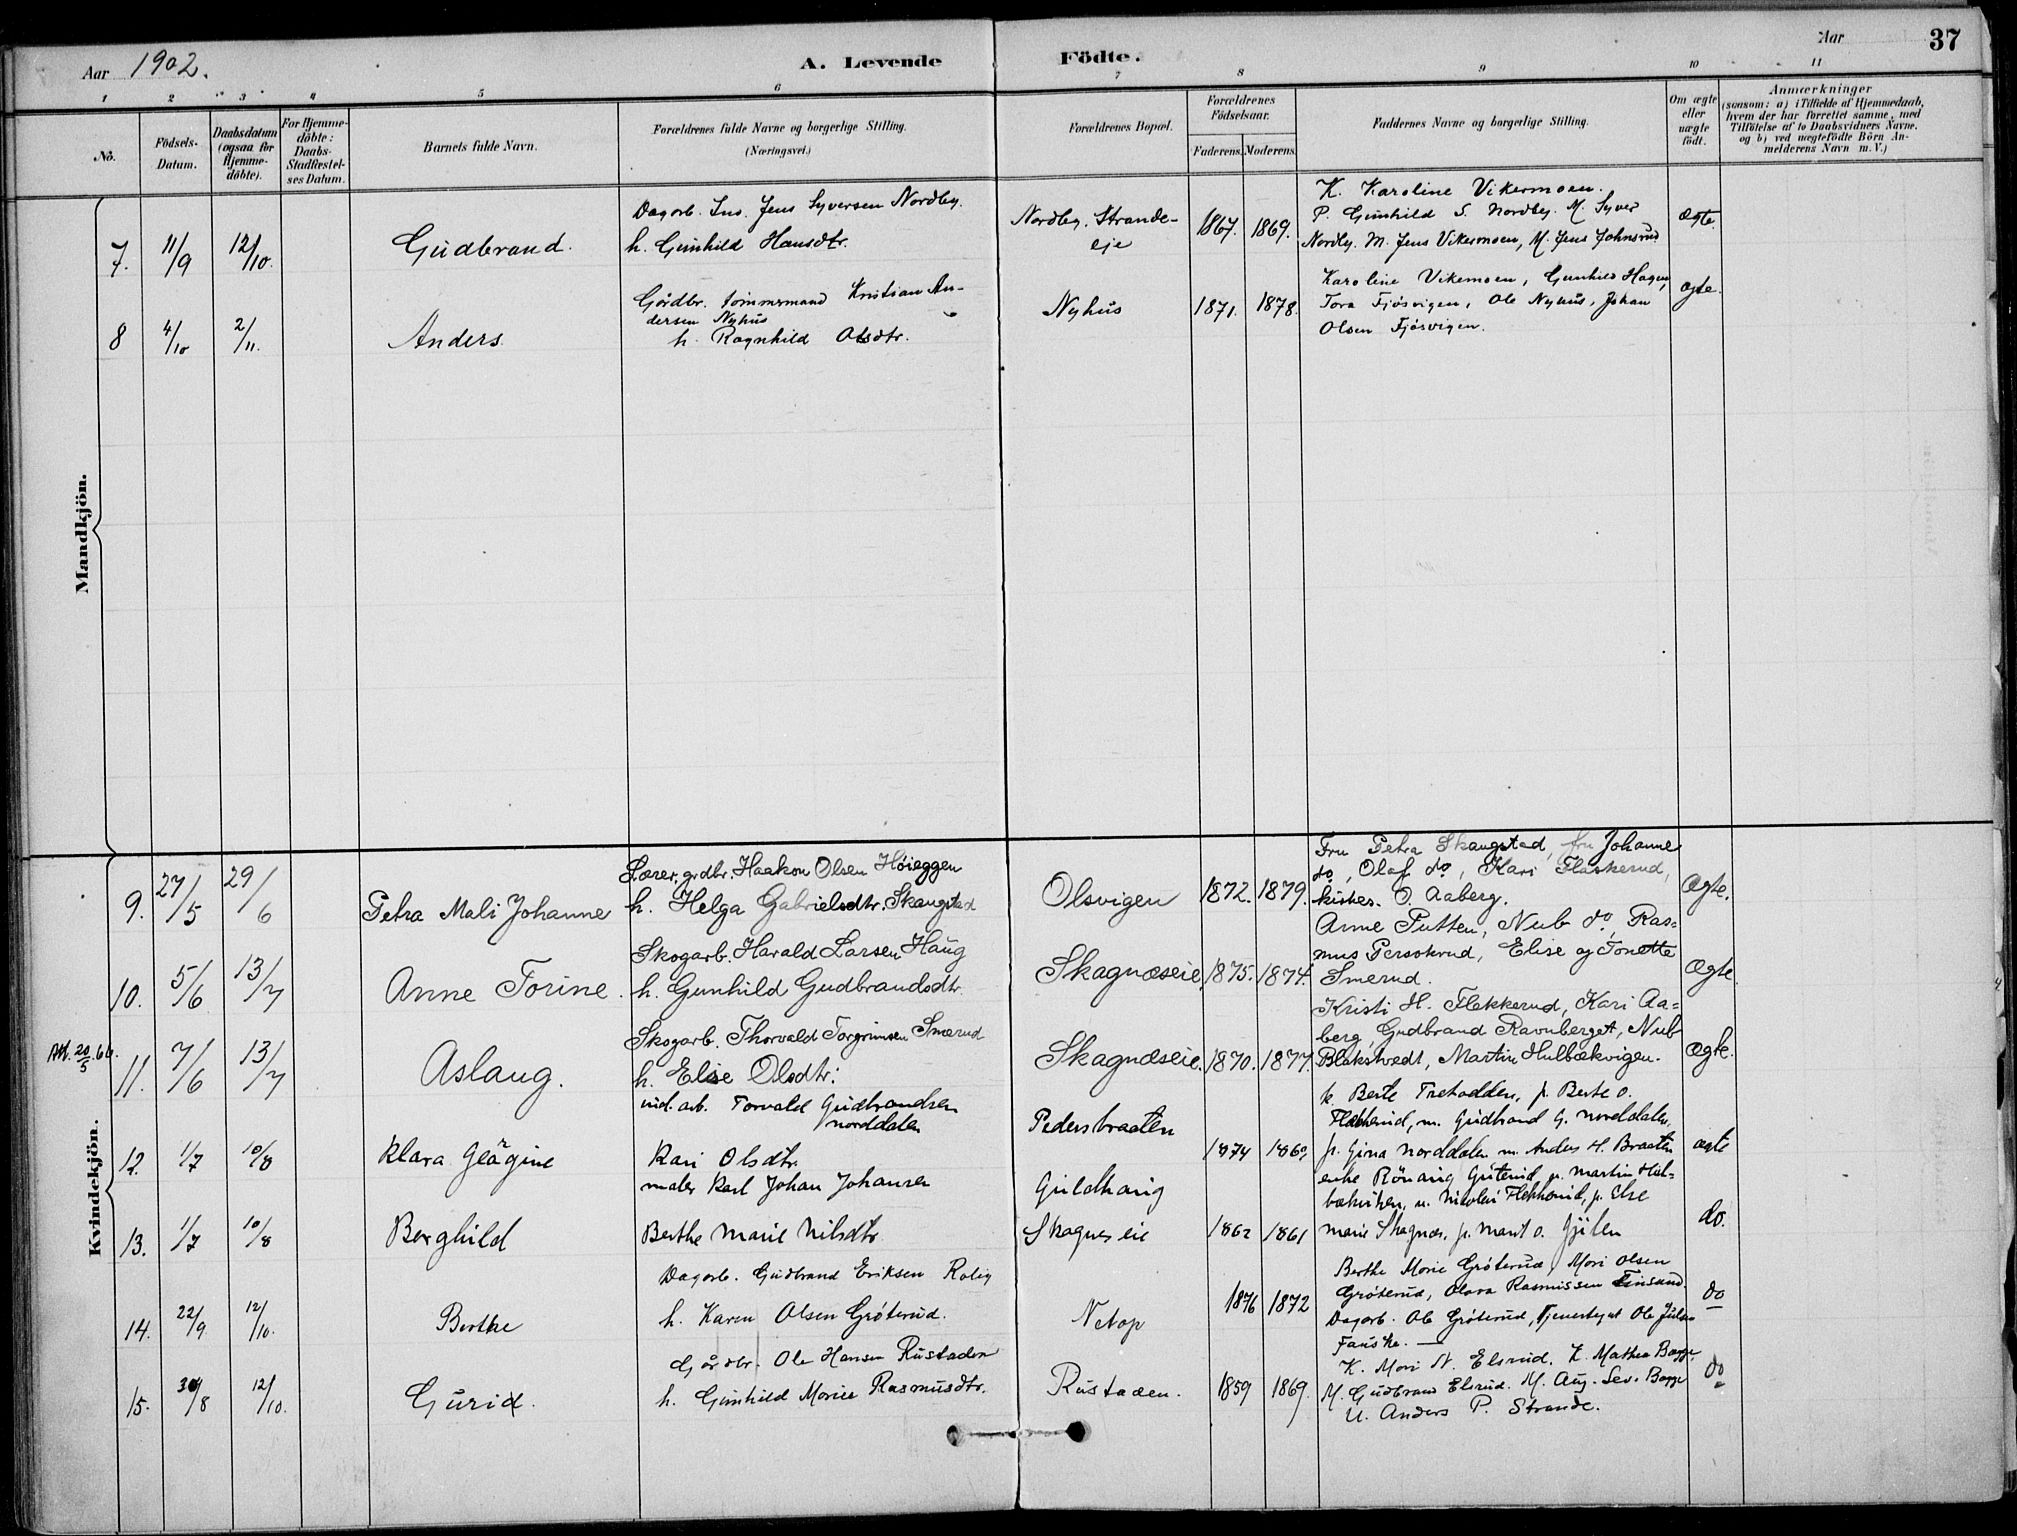 Aar 1902.
A. Levende Födte.
Aar
37
1 2 3 4 5 6 7 8 9 10 11
Nö.
Födsels-Datum.
Daabsdatum (ogsaa for Hjemme-döbte).
For Hjemme-döbte: Daabs-Stadfæstel-ses Datum.
Barnets fulde Navn.
Forældrenes fulde Navne og borgerlige Stilling. (Næringsvei.)
Forældrenes Bopæl.
Forældrenes Födselsaar.
Faderens. Moderens.
Faddernes Navne og borgerlige Stilling.
Om ægte eller uægte födt.
Anmærkninger
(saasom: a) i Tilfælde af Hjemmedaab,
hvem der har forrettet samme, med
Tilföielse af to Daabsvidners Navne.
og b) ved uægtefödte Börn An-
melderens Navn m. V.)
Mandkjön.
7. 11/9 12/10. Gudbrand.
Dagarb. Ins. Jens Syversen Nordby.
h. Gunhild Hansdtr.
Nordby. Strande-
eje
1867. 1869.
K. Karoline Vikermoen.
P. Gunhild S. Nordby. M. Syver
Nordby. M. Jens Vikermoen, M. Jens Johnsrud
Ægte.
8 4/10 2/11. Anders.
Gårdbr. tömmermand Kristian An-
dersen Nyhus
h. Ragnhild Olsdtr.
Nyhus
1871. 1878.
Karoline Vikemoen, Gunhild Hagen,
Tora Fjösvigen, Ole Nyhus, Johan
Olsen Fjösvigen.
Ægte.
Kvindekjön.
9. 27/5 29/6 Petra Mali Johanne
Lærer, grdbr. Haakon Olsen Höieggen
h. Helga Gabrielsdtr. Skaugstad
Olsvigen
1872. 1879.
Fru Petra Skaugstad, fru Johanne
do, Olaf do, Kari Flaskerud,
kirkes. O. Aaberg.
Ægte.
10. 5/6 13/7 Anne Torine.
Skogarb. Harald Larsen Haug
h. Gunhild Gudbrandsdtr.
Skagnæseie
1875. 1874.
Anne Putten, Nub do, Ras=
mus Perskrud, Elise og Tonette
Smerud.
Ægte.
Att. 20/5 66.
11. 7/6 13/7 Aslaug.
Skogarb. Thorvald Torgrimsen Smerud
h. Elise Olsdtr.
Skagnæseie.
1870. 1877.
Kristi H. Flekkerud, Kari Aa=
berg, Gudbrand Ravnberget, Nub
Blakstvedt, Martin Hulbækvigen.
Ægte.
12. 1/7 10/8 Klara
ind. arb. Torvald Gudbrandsen
Norddalen
Kari Olsdtr.
Pedersbraaten
1874 1860,
k. Berte Tretodden, p. Berte O.
Flekkerud, m. Gudbrand G. Norddalen,
p. Gina Norddalen m. Anders H. Braaten
ægte
13. 1/7 10/8 Borghild
maler Karl Johan Johansen
Berthe Marie Nilsdtr
Guldhaug
Skagnes eie
1862 1861
enke Rönaug Guterud, u. Martin Hul-
bækviken, u. Nicolai Flekkerud, p. Else
Marie Skagnæs, p. Marit O. Gjölen
do.
14. 22/9 12/10. Berthe
Dagarb. Gudbrand Eriksen Rolig
h. Karen Olsen Gröterud.
Netop
1876 1872
Berthe Marie Gröterud, Mari Olsen
Gröterud, Olava Rasmussen Finsand.
Dagarb. Ole Gröterud, Tjenestegut Ole Julsen
Fauske.
do
15. 30/8 12/10. Gurid.
Gårdbr. Ole Hansen Rustaden
h. Gunhild Marie Rasmusdtr.
Rustaden.
1859 1869.
K. Mari N. Elsrud. K. Mathea Bagge
M. Gudbrand Elsrud. M. Aug. Sev. Bagge
U. Anders P. Strande.
do